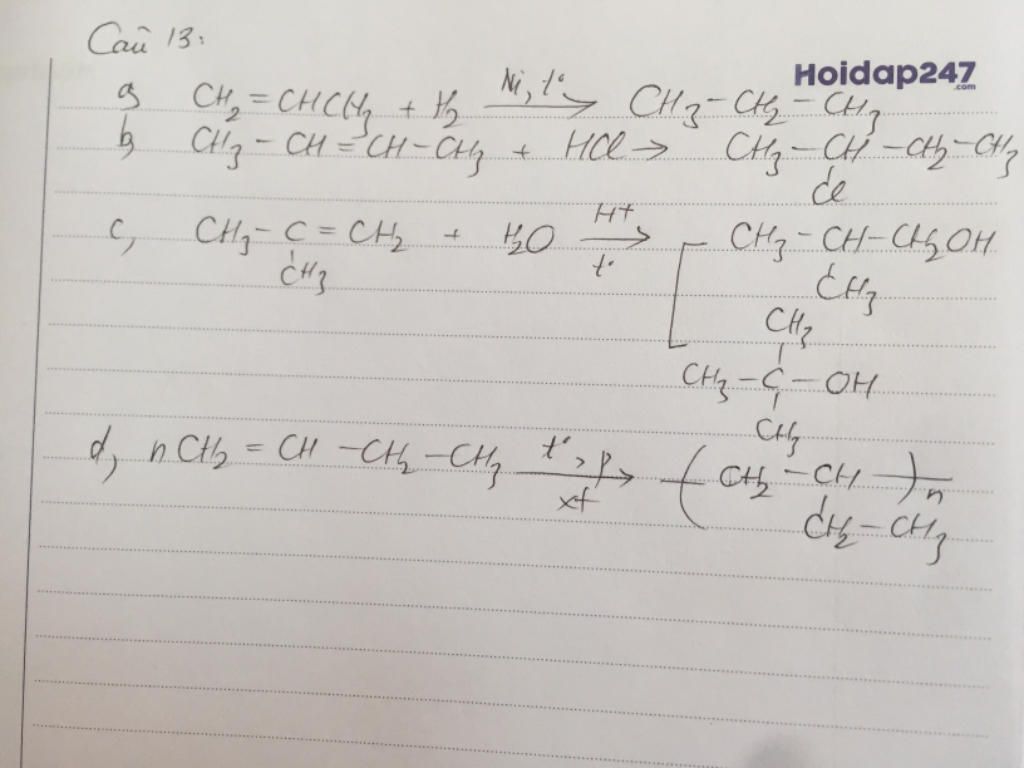 Câu 13:
Hoidap247.com
a, CH₂=CHCH₃ + H₂ —Ni, t°→ CH₃-CH₂-CH₃
b, CH₃-CH=CH-CH₃ + HCl → CH₃-CH-CH₂-CH₃
Cl
c, CH₃-C=CH₂ + H₂O —H+, t°→ CH₃-CH-CH₂OH
CH₃ CH₃
CH₃
CH₃-C-OH
CH₃
d, nCH₂=CH-CH₂-CH₃ —t°, p, xt→ (CH₂-CH)n
CH₂-CH₃